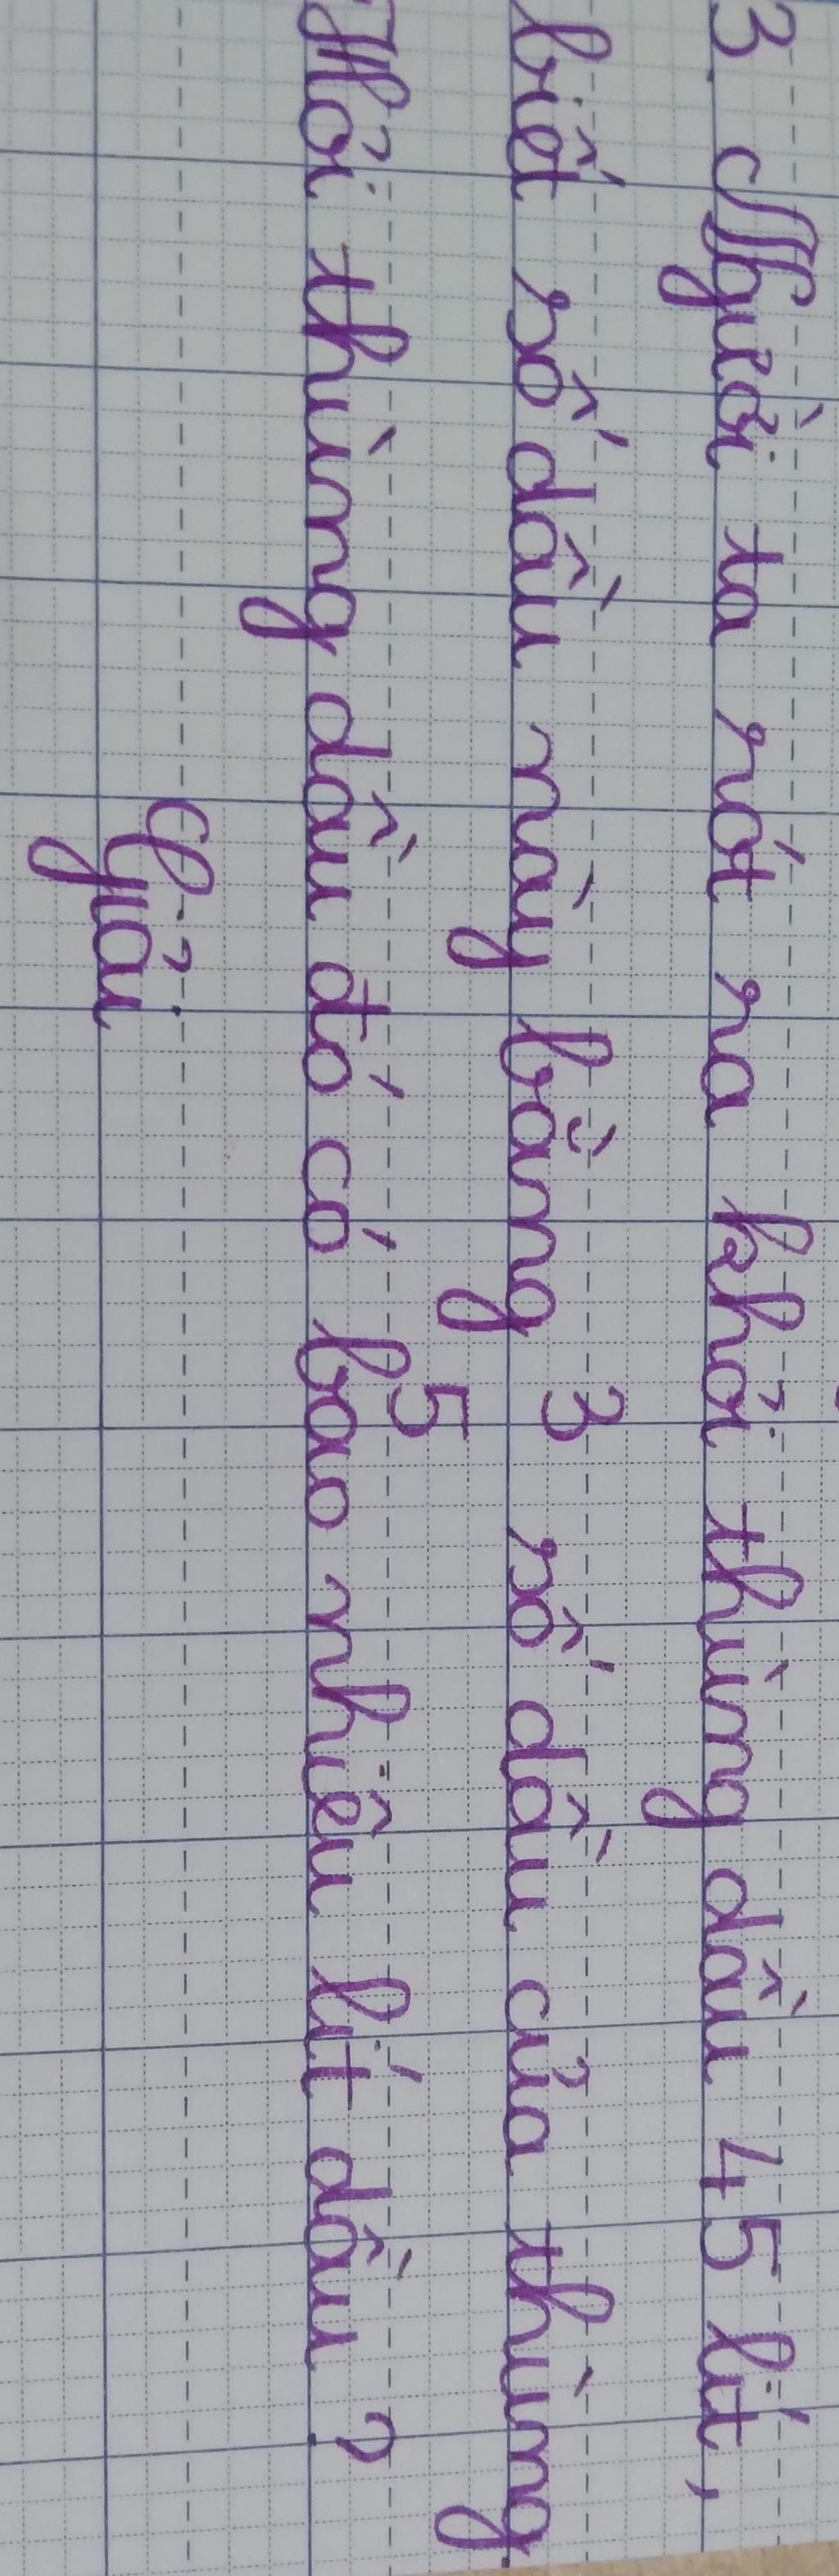 3. Người ta rót ra khỏi thùng dầu 45 lít,
biết số dầu này bằng 3/5 số dầu của thùng.
Hỏi thùng dầu đó có bao nhiêu lít dầu?
Giải